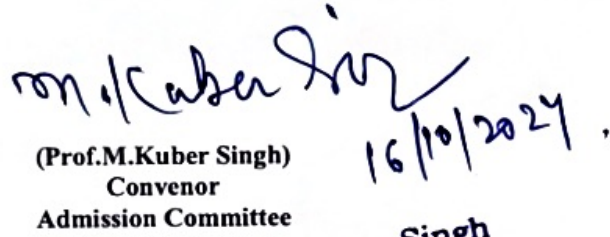 M. Kuber Sing
16/10/2024.
(Prof.M.Kuber Singh)
Convenor
Admission Committee
Singh